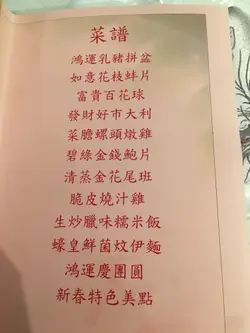 菜譜
鴻運乳豬拼盆
如意花枝蚌片
富貴百花球
發財好市大利
菜膽螺頭燉雞
碧綠金錢鮑片
清蒸金花尾班
脆皮燒汁雞
生炒臘味糯米飯
蠔皇鮮菌炆伊麵
鴻運慶團圓
新春特色美點